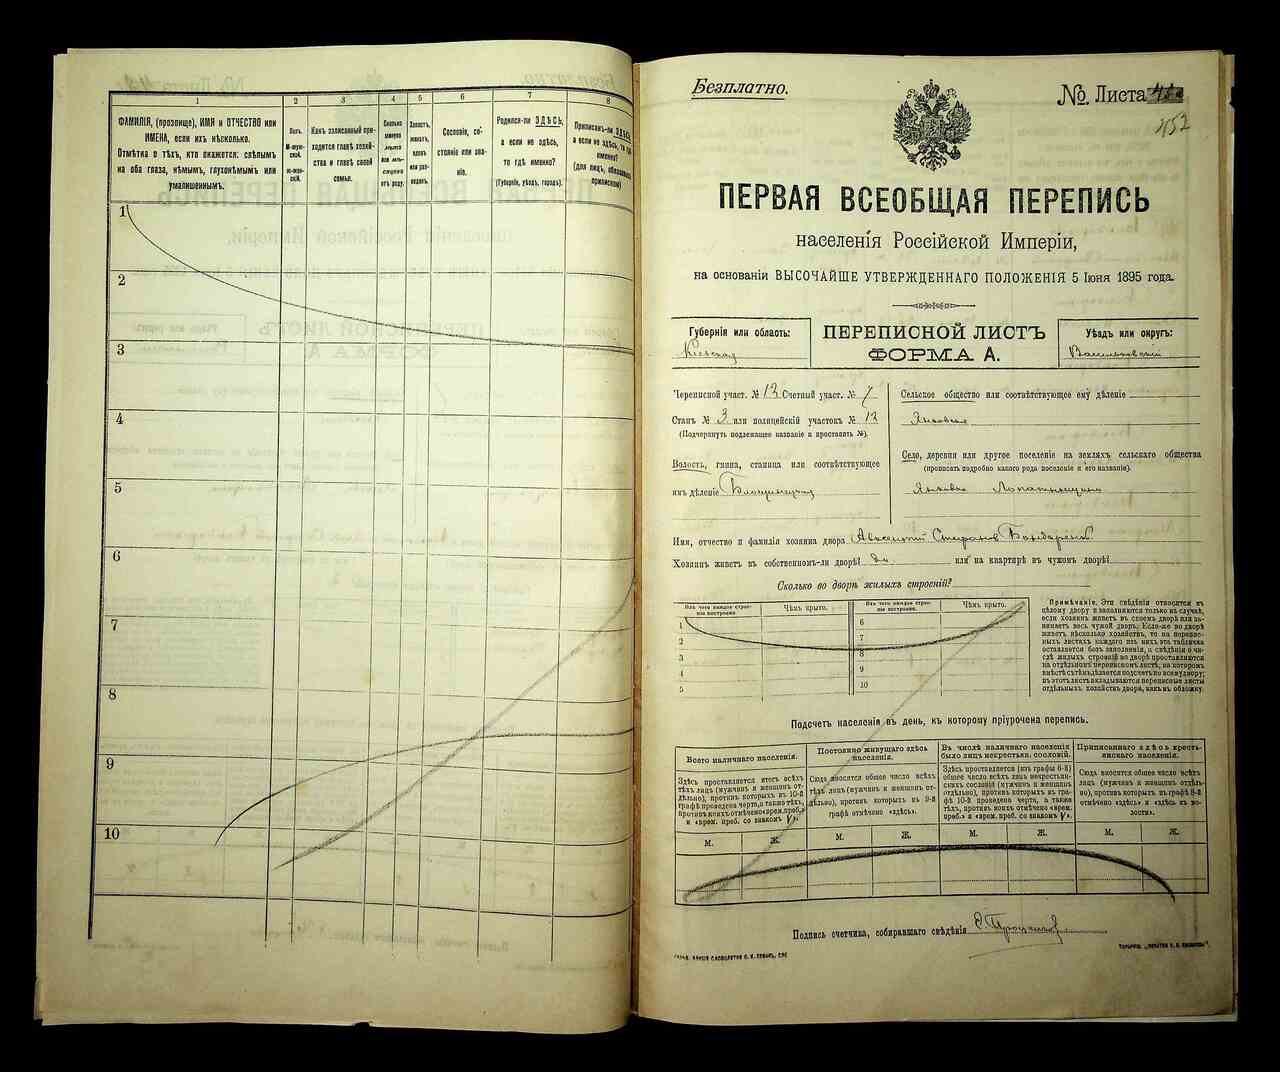 1
2
3
4
5
6
7
8
ФАМИЛІЯ, (прозвище), ИМЯ и ОТЧЕСТВО или
ИМЕНА, если ихъ нѣсколько.
Отмѣтка о тѣхъ, кто окажется: слѣпымъ
на оба глаза, нѣмымъ, глухонѣмымъ или
умалишеннымъ.
Полъ.
М-мужской.
Ж-женскій.
Какъ записанный при-
ходится главѣ хозяй-
ства и главѣ своей
семьи.
Сколько
минуло
лѣтъ
или мѣс-
отъ роду.
Холостъ,
женатъ,
вдовъ
или раз-
веденъ.
Сословіе, со-
стояніе или зва-
ніе.
Родился-ли ЗДѢСЬ,
а если не здѣсь,
то гдѣ именно?
(Губернія, уѣздъ, городъ).
Приписанъ-ли ЗДѢСЬ,
а если не здѣсь, то гдѣ
именно?
(для лицъ, обязанныхъ
припискою)
1
2
3
4
5
6
7
8
9
10
Безплатно.
№ Листа
452
ПЕРВАЯ ВСЕОБЩАЯ ПЕРЕПИСЬ
населенія Россійской Имперіи,
на основаніи ВЫСОЧАЙШЕ УТВЕРЖДЕННАГО ПОЛОЖЕНІЯ 5 Іюня 1895 года.
Губернія или область:
Кіевская
ПЕРЕПИСНОЙ ЛИСТЪ
ФОРМА А.
Уѣздъ или округъ:
Васильковскій
Переписной участ. № 12 Счетный участ. № 7
Станъ № 3 или полицейскій участокъ № 12
(Подчеркнуть подлежащее названіе и проставить №).
Волость, гмина, станица или соотвѣтствующее
имъ дѣленіе Блощинецкая
Сельское общество или соотвѣтствующее ему дѣленіе
Яньковка
Село, деревня или другое поселеніе на земляхъ сельскаго общества
(прописать подробно какого рода поселеніе и его названіе).
Яньковка
Имя, отчество и фамилія хозяина двора Авксентій Стефановъ Бондаренко
Хозяинъ живетъ въ собственномъ-ли дворѣ? да или на квартирѣ въ чужомъ дворѣ?
Сколько во дворѣ жилыхъ строеній?
Изъ чего каждое строе-
ніе построено.
Чѣмъ крыто.
Изъ чего каждое строе-
ніе построено.
Чѣмъ крыто.
1
2
3
4
5
6
7
8
9
10
Примѣчаніе. Эти свѣдѣнія относятся къ
цѣлому двору и заполняются только въ случаѣ,
если хозяинъ живетъ въ своемъ дворѣ или за-
нимаетъ весь чужой дворъ. Если-же во дворѣ
живетъ нѣсколько хозяйствъ, то на перепис-
ныхъ листахъ каждаго изъ нихъ эта табличка
оставляется безъ заполненія, а свѣдѣнія о чи-
слѣ жилыхъ строеній во дворѣ проставляются
на отдѣльномъ переписномъ листѣ, на которомъ
вмѣстѣ съ тѣмъ дѣлается подсчетъ по всему двору;
въ этотъ листъ вкладываются переписные листы
отдѣльныхъ хозяйствъ двора, какъ въ обложку.
Подсчетъ населенія въ день, къ которому пріурочена перепись.
Всего наличнаго населенія.
Здѣсь проставляется итогъ всѣхъ
тѣхъ лицъ (мужчинъ и женщинъ от-
дѣльно), противъ которыхъ въ 10-й
графѣ проведена черта, а также тѣхъ,
противъ коихъ отмѣчено «врем. преб.»
и «врем. преб. со знакомъ V».
Постоянно живущаго здѣсь
населенія.
Сюда вносится общее число всѣхъ
тѣхъ лицъ (мужчинъ и женщинъ от-
дѣльно), противъ которыхъ въ 9-й
графѣ отмѣчено «здѣсь».
Въ числѣ наличнаго населенія
было лицъ некрестьян. сословій.
Здѣсь проставляется (изъ графы 6-й)
общее число всѣхъ лицъ некрестьян-
скихъ сословій (мужчинъ и женщинъ
отдѣльно), противъ которыхъ въ гра-
фѣ 10-й проведена черта, а также
тѣхъ, противъ коихъ отмѣчено «врем.
преб.» и «врем. преб. со знакомъ V».
Приписаннаго здѣсь кресть-
янскаго населенія.
Сюда вносится общее число всѣхъ
лицъ (мужчинъ и женщинъ отдѣль-
но), противъ которыхъ въ графѣ 8-й
отмѣчено «здѣсь» и «здѣсь въ во-
лости».
М.
Ж.
М.
Ж.
М.
Ж.
М.
Ж.
Подпись счетчика, собиравшаго свѣдѣнія